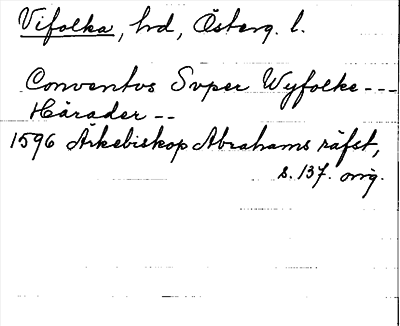 Vifolka, hd, Österg. l.
Conventus Super Wyfolke---
Härader --
1596 Ärkebiskop Abrahams räfst,
s. 137. orig.